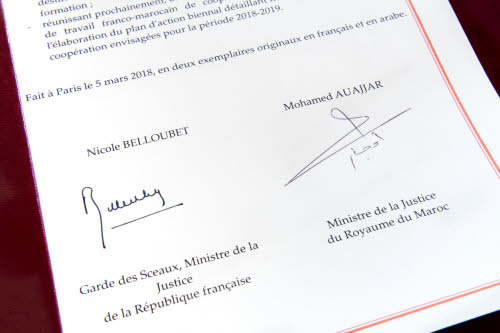 formation ;
- réunissant prochainement,
de travail franco-marocain de
l'élaboration du plan d'action biennal détaillant
coopération envisagées pour la période 2018-2019.
Fait à Paris le 5 mars 2018, en deux exemplaires originaux en français et en arabe.
Nicole BELLOUBET
Mohamed AUAJJAR
Garde des Sceaux, Ministre de la
Justice
de la République française
Ministre de la Justice
du Royaume du Maroc